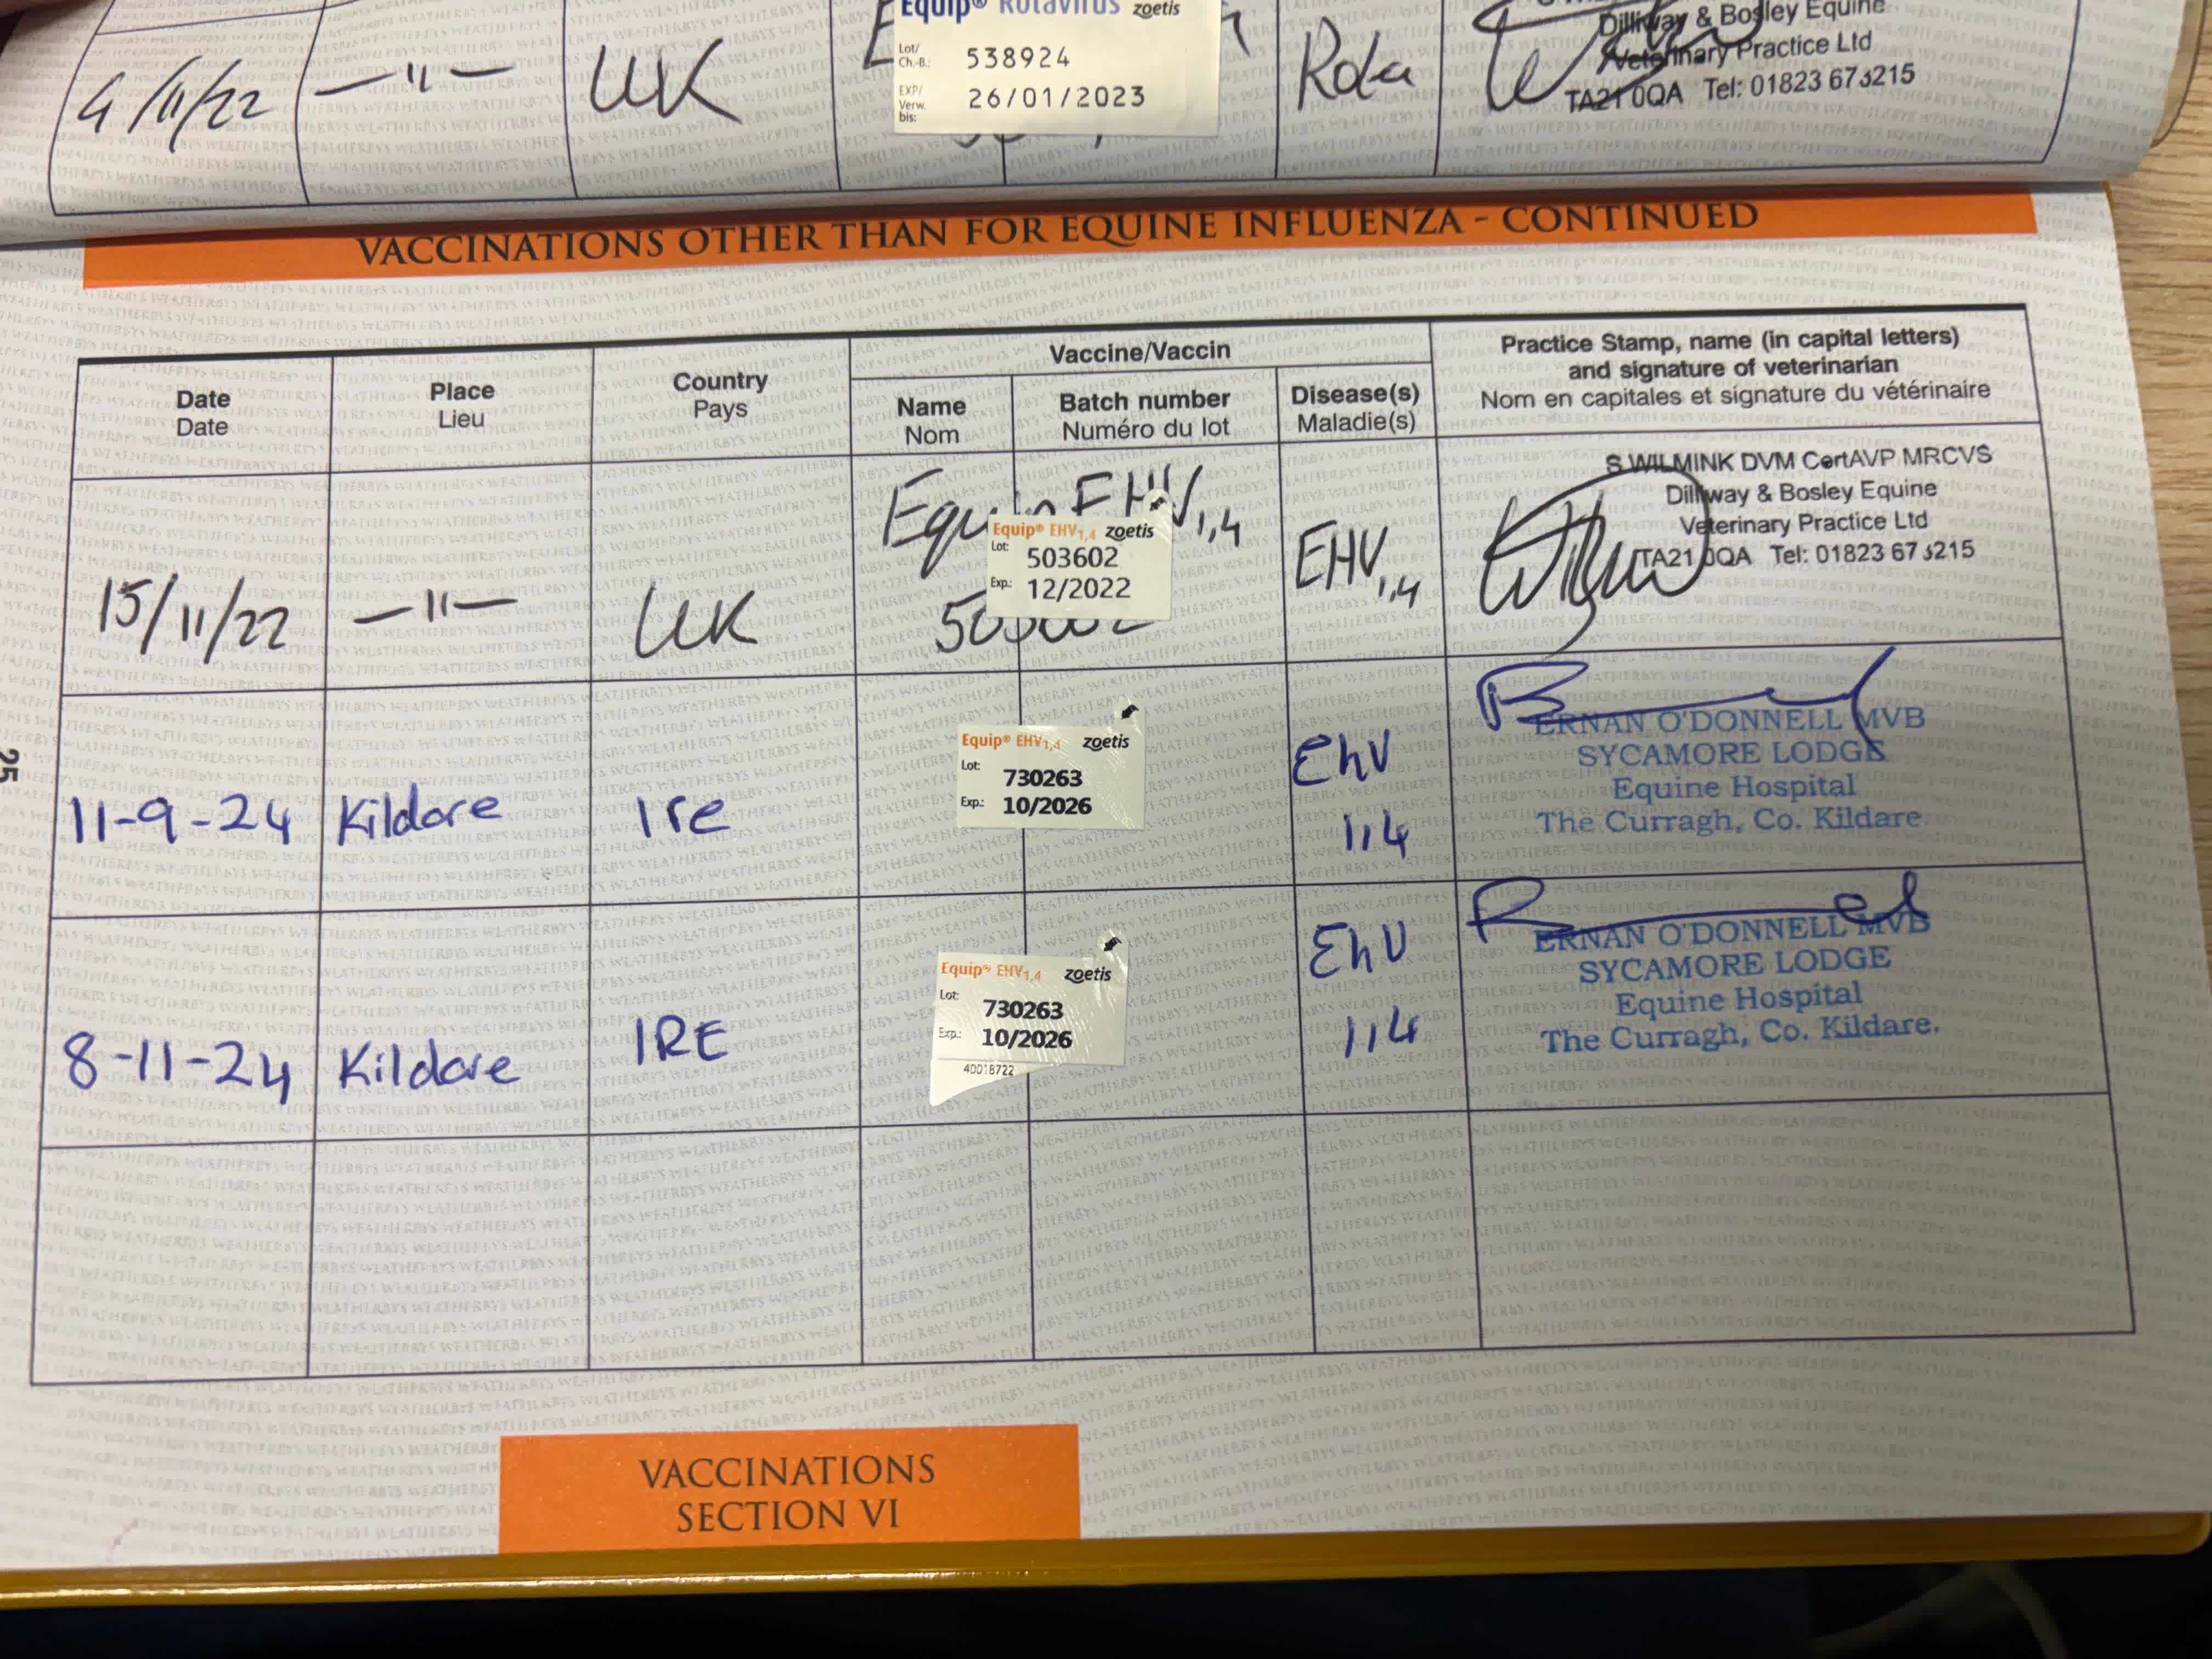 Equip® Rotavirus zoetis
Lot/
Ch.-B.: 538924
EXP/
Verw.
bis: 26/01/2023
4/11/22 —"— UK Rota
Dilliway & Bosley Equine
Veterinary Practice Ltd
TA21 0QA Tel: 01823 673215
VACCINATIONS OTHER THAN FOR EQUINE INFLUENZA - CONTINUED
Date
Date
Place
Lieu
Country
Pays
Vaccine/Vaccin
Name
Nom
Batch number
Numéro du lot
Disease(s)
Maladie(s)
Practice Stamp, name (in capital letters)
and signature of veterinarian
Nom en capitales et signature du vétérinaire
15/11/22 —"— UK
Equip EHV1,4
Equip® EHV1,4 zoetis
Lot: 503602
Exp.: 12/2022
EHV1,4
S WILMINK DVM CertAVP MRCVS
Dilliway & Bosley Equine
Veterinary Practice Ltd
TA21 0QA Tel: 01823 673215
11-9-24 Kildare Ire
Equip® EHV1,4 zoetis
Lot: 730263
Exp.: 10/2026
EhV
1,4
ERNAN O'DONNELL MVB
SYCAMORE LODGE
Equine Hospital
The Curragh, Co. Kildare.
8-11-24 Kildare IRE
Equip® EHV1,4 zoetis
Lot: 730263
Exp.: 10/2026
40018722
EhV
1,4
ERNAN O'DONNELL MVB
SYCAMORE LODGE
Equine Hospital
The Curragh, Co. Kildare.
25
VACCINATIONS
SECTION VI